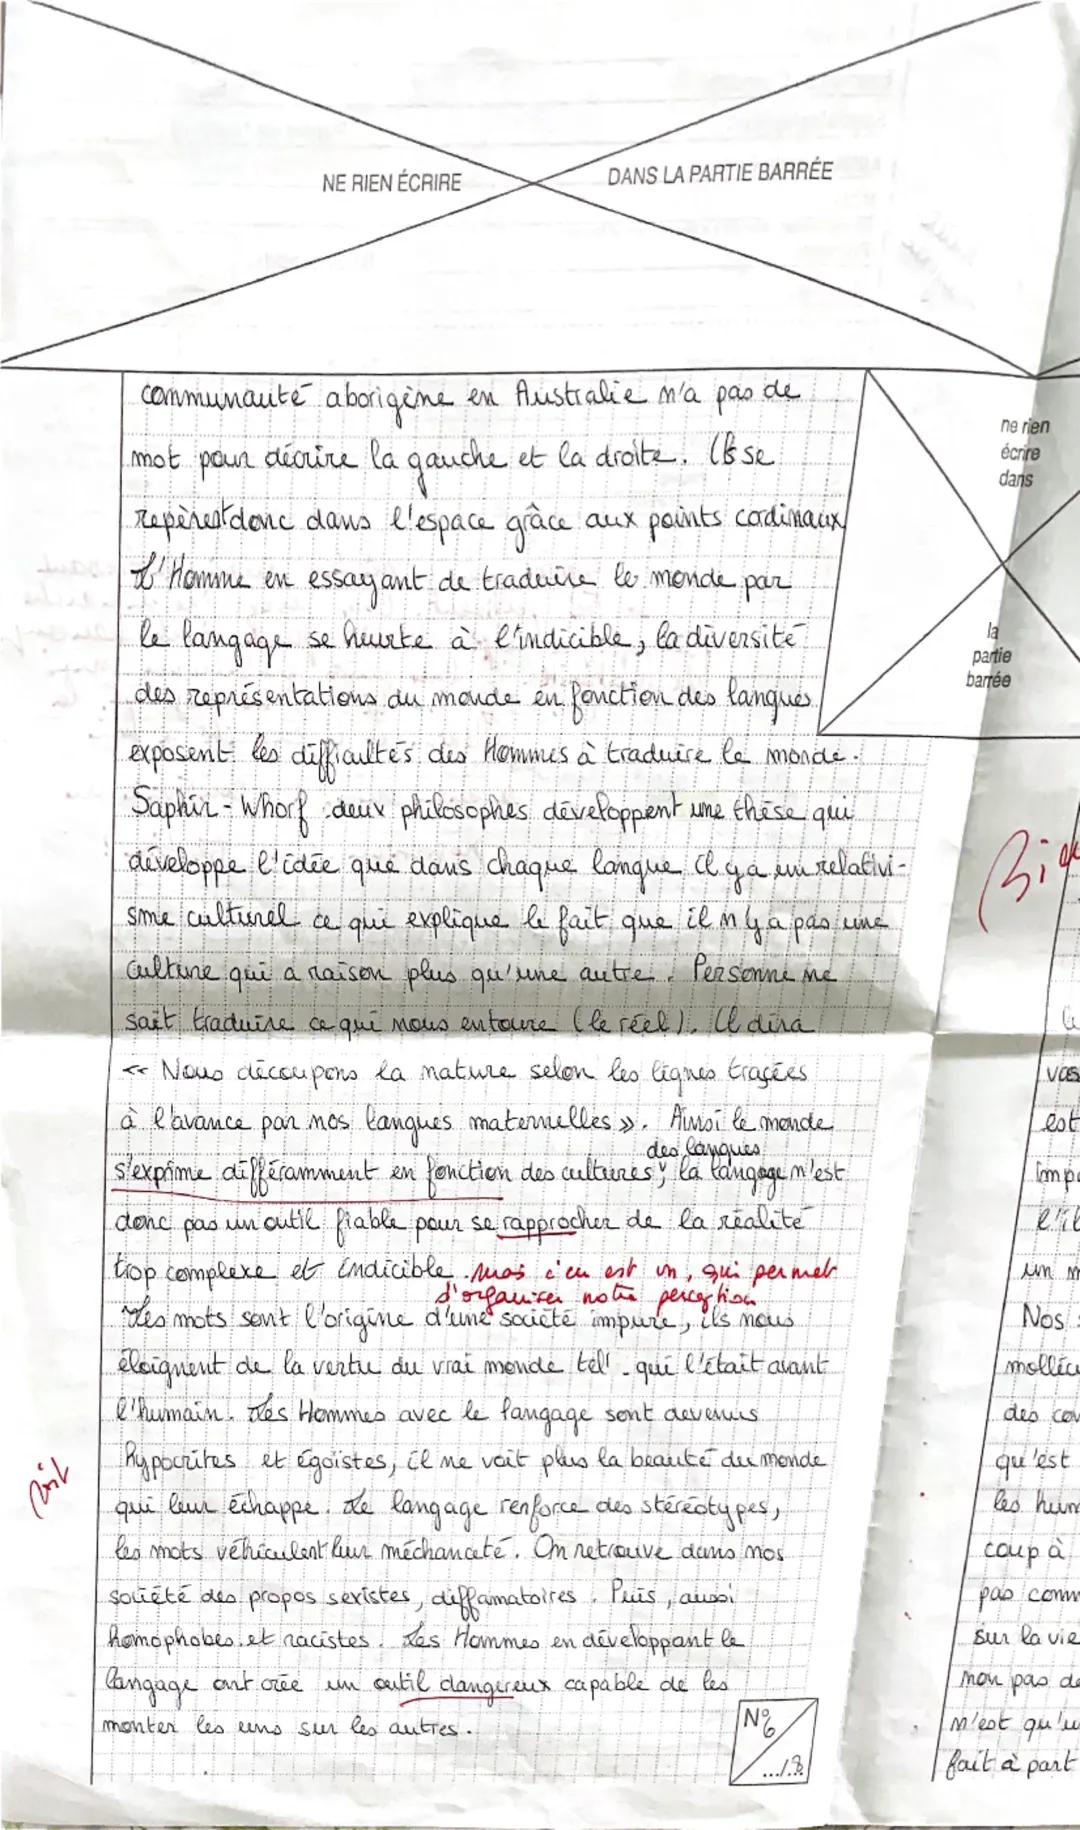 NE RIEN ÉCRIRE DANS LA PARTIE BARRÉE
ne rien
écrire
dans
la
partie
barrée
communauté aborigène en Australie n'a pas de
mot pour décrire la gauche et la droite. Ils se
repèrent donc dans l'espace grâce aux points cardinaux
L'Homme en essayant de traduire le monde par
le langage se heurte à l'indicible, la diversité
des représentations du monde en fonction des langues
exposent les difficultés des Hommes à traduire le monde.
Saphir-Whorf deux philosophes développent une thèse qui
développe l'idée que dans chaque langue il y a un relativi-
sme culturel ce qui explique le fait que il n'y a pas une
culture qui a raison plus qu'une autre. Personne ne
sait traduire ce qui nous entoure (le réel). Il dira
« Nous découpons la nature selon les lignes tracées
à l'avance par nos langues maternelles ». Ainsi le monde
des langues
s'exprime différamment en fonction des cultures, la langage n'est
donc pas un outil fiable pour se rapprocher de la réalité
trop complexe et indicible. mais c'en est un, qui permet
d'organiser notre perception
Les mots sont l'origine d'une société impure, ils nous
éloignent de la vertu du vrai monde tel qui l'était avant
l'humain. Les Hommes avec le langage sont devenus
hypocrites et égoïstes, il ne voit plus la beauté du monde
qui leur échappe. Le langage renforce des stéréotypes,
les mots véhiculent leur méchanceté. On retrouve dans nos
société des propos sexistes, diffamatoires. Puis, aussi
homophobes et racistes. Les Hommes en développant le
langage ont crée un outil dangereux capable de les
monter les uns sur les autres.
N°6
.../8
vas
est
imp
l'il
un m
Nos
des cou
qu'est
les hum
coup à
pas comm
sur la vie
non pas de
n'est qu'u
fait à part